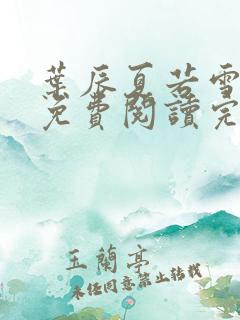 葉辰夏若雪
免費閱讀完
玉蘭亭
未經同意禁止轉載